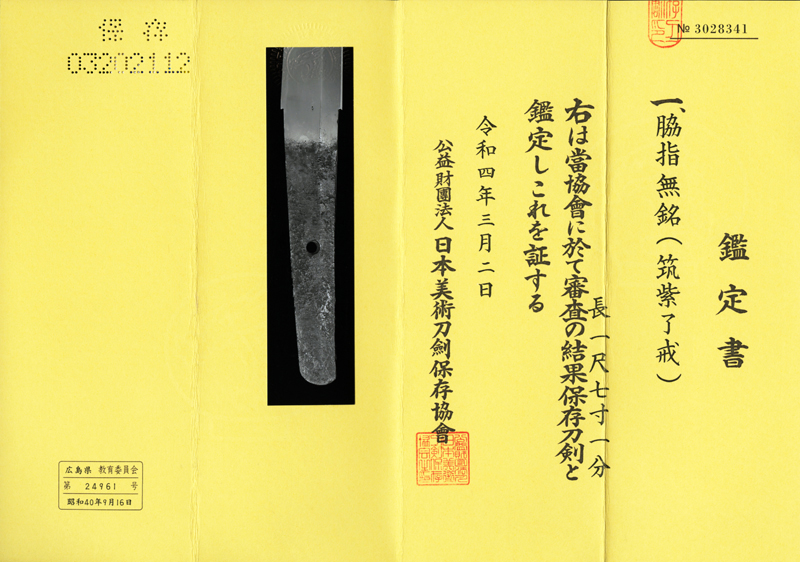 № 3028341
鑑定書
一、脇指無銘(筑紫了戒)
長一尺七寸一分
右は當協會に於て審査の結果保存刀剣と
鑑定しこれを証する
令和四年三月二日
公益財團法人日本美術刀劍保存協會
保存
03202112
広島県 教育委員会
第 24961 号
昭和40年9月16日